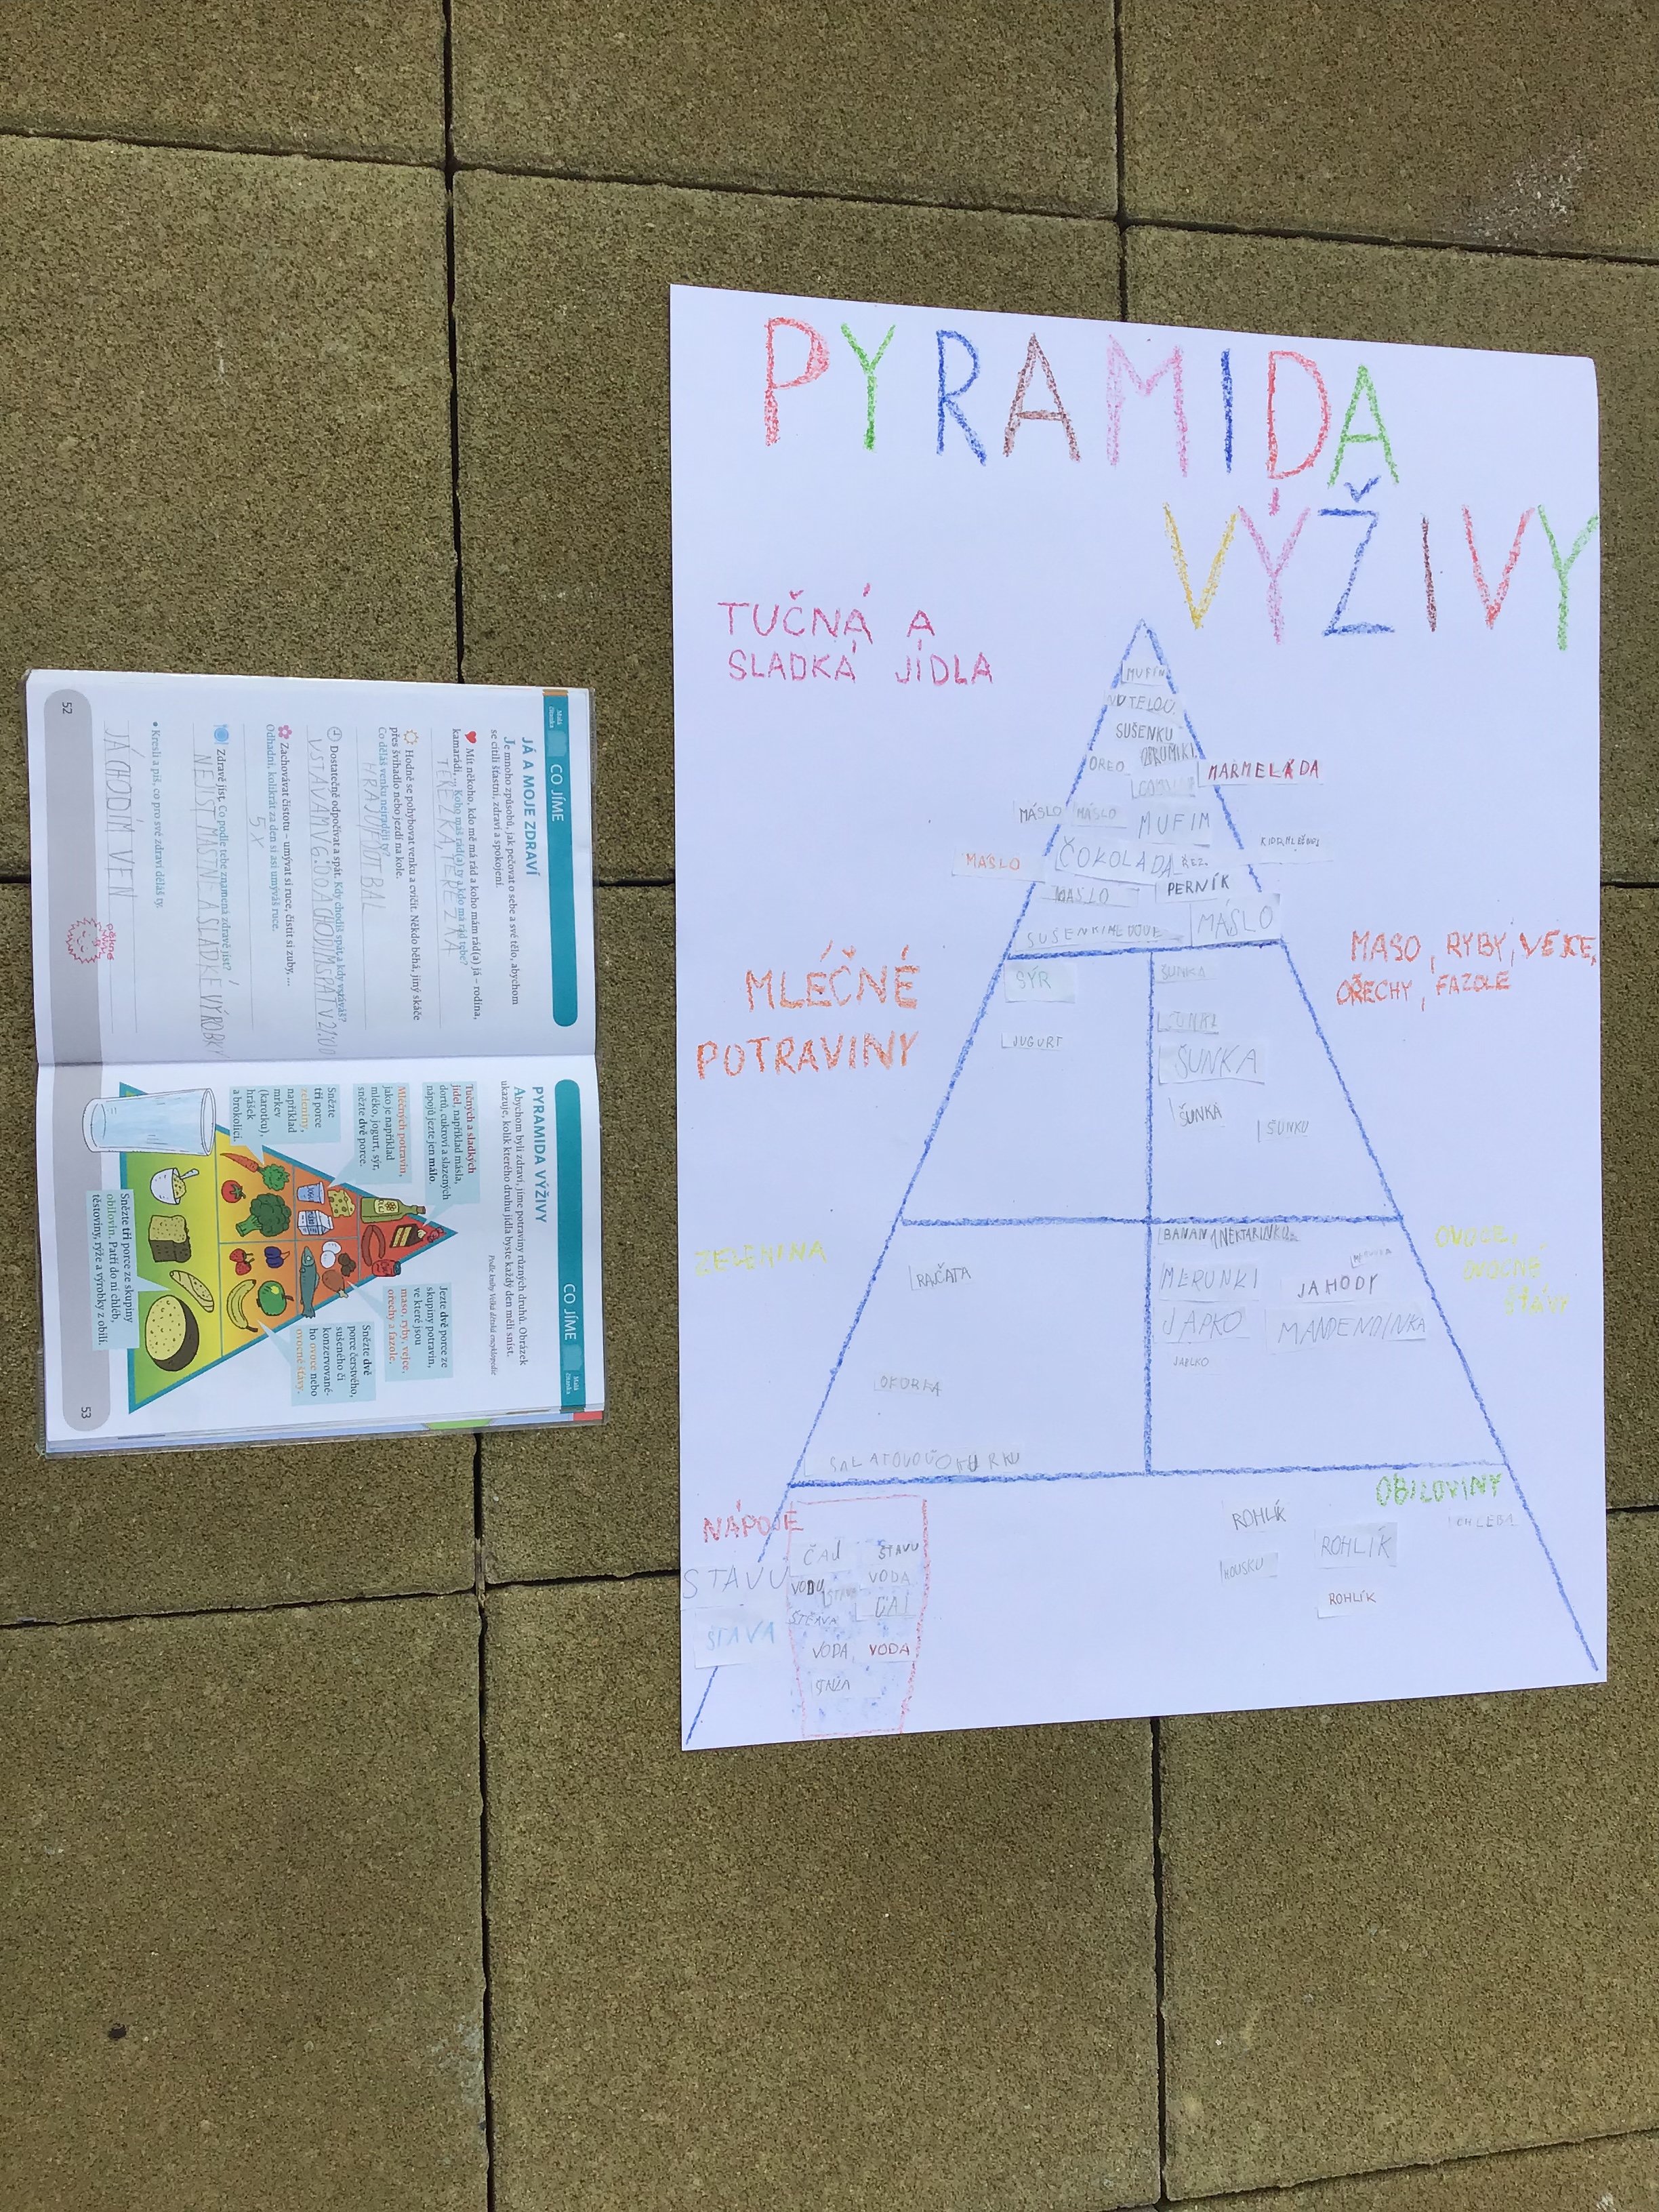 PYRAMIDA
VÝŽIVY
TUČNÁ A
SLADKÁ JÍDLA
MUFIN
NUTELOU
SUŠENKU
OREO
MARMELÁDA
MÁSLO
MÁSLO
MUFIM
MÁSLO
ČOKOLÁDA
ŘEZ.
MÁSLO
PERNÍK
MÁSLO
MLÉČNÉ
POTRAVINY
MASO, RYBY, VEJCE,
OŘECHY, FAZOLE
SÝR
JUGURT
ŠUNKA
ŠUNKA
ŠUNKA
ŠUNKU
ZELENINA
OVOCE,
OVOCNÉ
ŠŤÁVY
RAJČATA
OKURKA
SALATOVOU OKURKU
BANAN
NEKTARINKU
MERUNKI
JAHODY
JAPKO
MANDENDINKA
JABLKO
NÁPOJE
OBILOVINY
ČAJ
ŠTAVU
STAVU
VODU
VODA
ČAJ
ŠTAVA
VODA
VODA
ROHLÍK
CHLEBA
ROHLÍK
HOUSKU
ROHLÍK
Malá
čítanka
CO JÍME
JÁ A MOJE ZDRAVÍ
Je mnoho způsobů, jak pečovat o sebe a své tělo, abychom
se cítili šťastní, zdraví a spokojení.
Mít někoho, kdo mě má rád a koho mám rád(a) já – rodina,
kamarádi, … Koho máš rád(a) ty a kdo má rád tebe?
TEREZKA, TEREZKA
Hodně se pohybovat venku a cvičit. Někdo běhá, jiný skáče
přes švihadlo nebo jezdí na kole.
Co děláš venku nejraději ty?
HRAJU FOTBAL
Dostatečně odpočívat a spát. Kdy chodíš spát a kdy vstáváš?
VSTÁVÁM V 6:00 A CHODÍM SPÁT V 21:00
Zachovávat čistotu – umývat si ruce, čistit si zuby…
Odhadni, kolikrát za den si asi umýváš ruce.
5X
Zdravě jíst. Co podle tebe znamená zdravě jíst?
NEJÍST MASTNÉ A SLADKÉ VÝROBKY
• Kresli a piš, co pro své zdraví děláš ty.
JÁ CHODÍM VEN
52
CO JÍME
Malá
čítanka
PYRAMIDA VÝŽIVY
Abychom byli zdraví, jíme potraviny různých druhů. Obrázek
ukazuje, kolik kterého druhu jídla byste každý den měli sníst.
Podle knihy Velká dětská encyklopedie
Tučných a sladkých
jídel, například másla,
dortů, cukroví a slazených
nápojů jezte jen málo.
Mléčných potravin,
jako je například
mléko, jogurt, sýr,
snězte dvě porce.
Snězte
tři porce
zeleniny,
například
mrkev
(karotku),
hrášek
a brokolici.
Jezte dvě porce ze
skupiny potravin,
ve které jsou
maso, ryby, vejce,
ořechy a fazole.
Snězte dvě
porce čerstvého,
sušeného či
konzervované-
ho ovoce nebo
ovocné šťávy.
Snězte tři porce ze skupiny
obilovin. Patří do ní chléb,
těstoviny, rýže a výrobky z obilí.
53